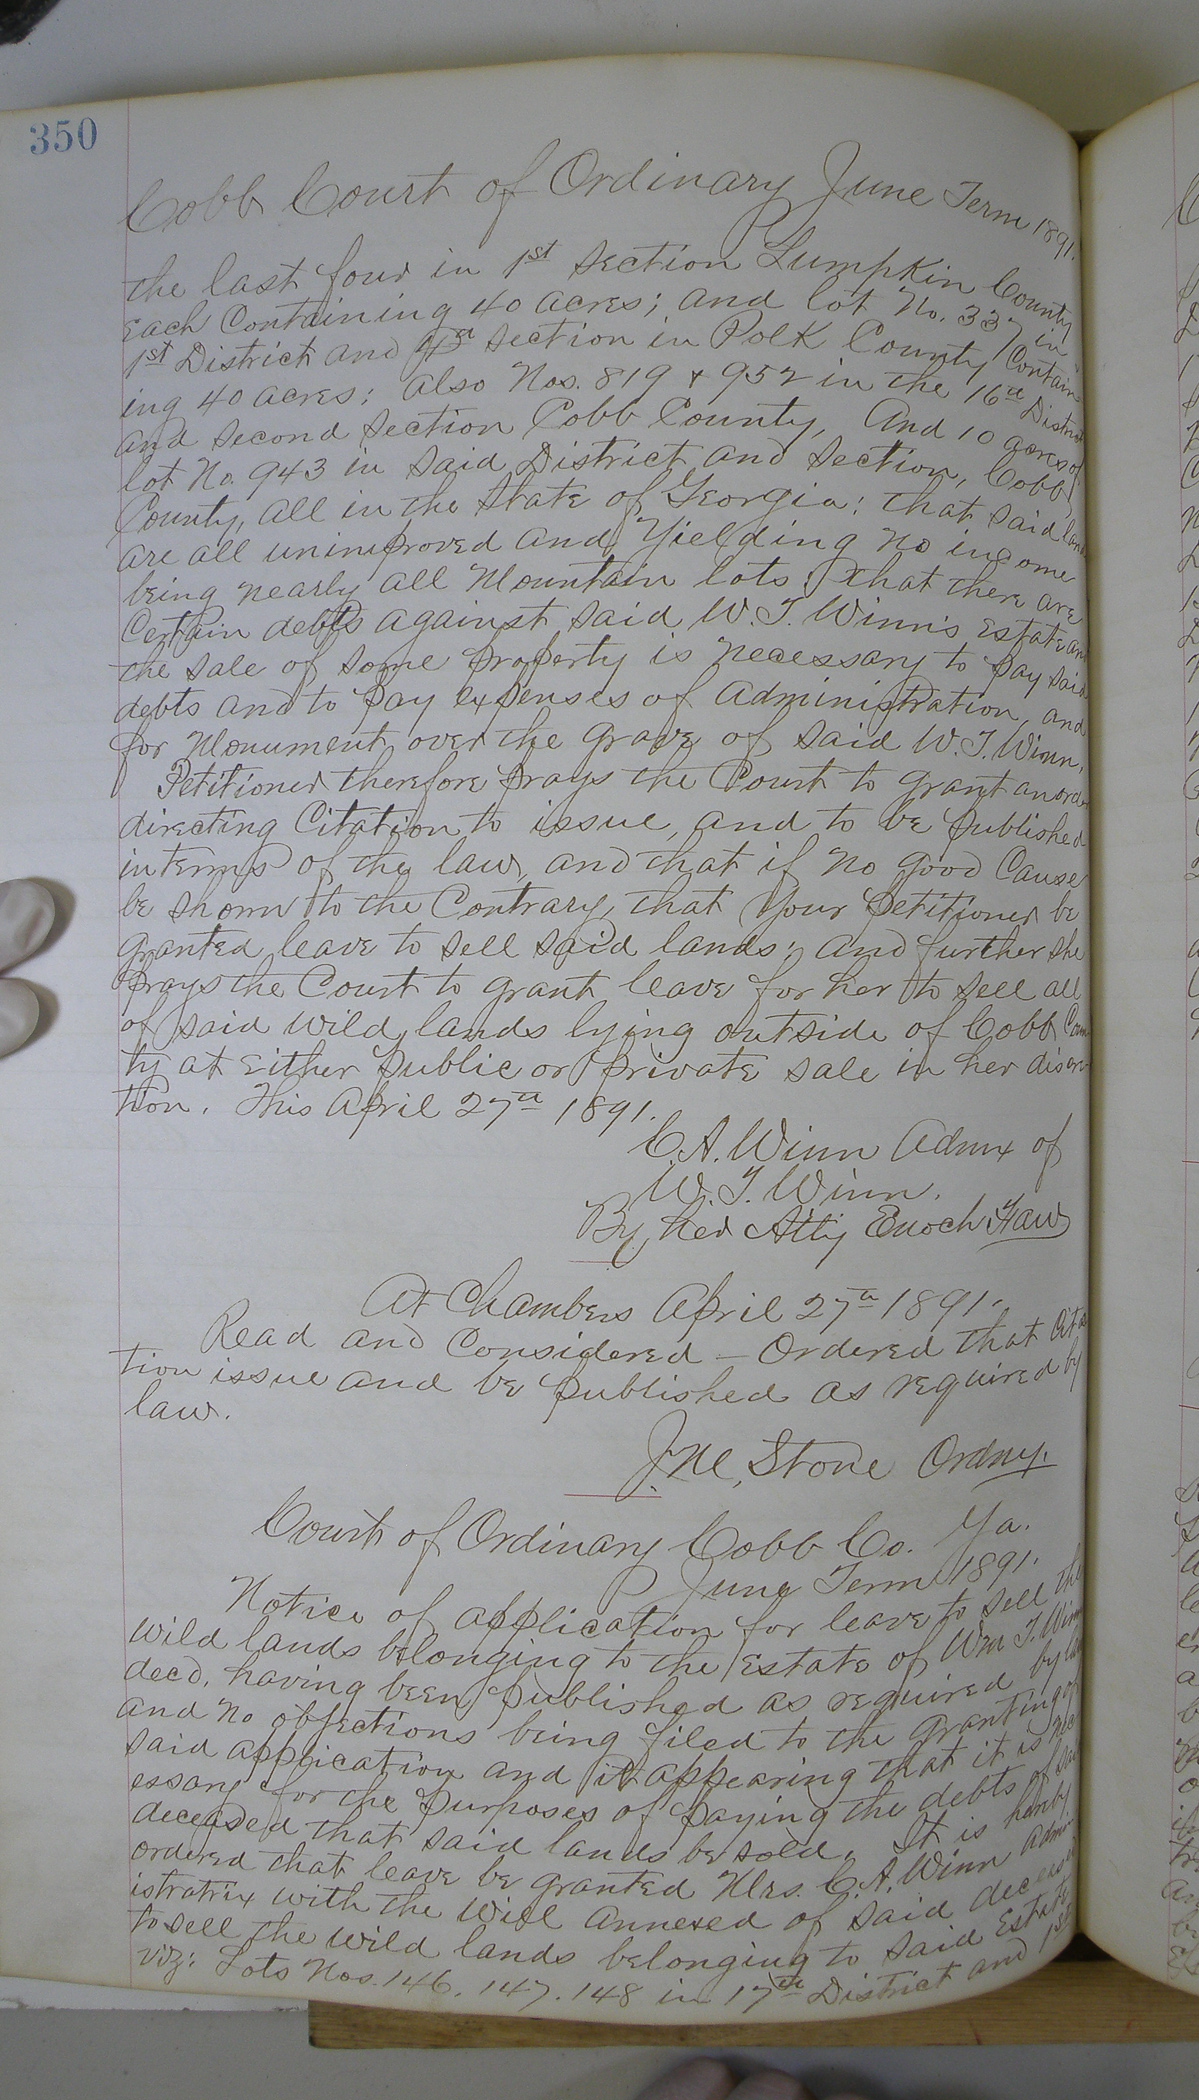 350
Cobb Court of Ordinary June Term 1891.
the last four in 1st Section Lumpkin County
Each Containing 40 acres; and lot No. 337 in
1st District and 4th Section in Polk County Contain-
ing 40 acres; also Nos. 819 & 952 in the 16th District
and Second Section Cobb County, And 10 acres of
lot No. 943 in Said District and Section, Cobb
County, all in the State of Georgia; that Said land
are all unimproved and Yielding No income
being nearly all Mountain lots; that there are
Certain debts against Said W. T. Winn's Estate and
the sale of some property is necessary to pay said
debts and to pay expenses of administration, and
for Monument over the Grave of Said W. T. Winn.
Petitioner therefore prays the Court to grant an order
directing Citation to issue, and to be published
in terms of the law, and that if no good Cause
be shown to the Contrary, that Your Petitioner be
granted leave to sell said lands; and further she
prays the Court to grant leave for her to sell all
of said wild lands lying outside of Cobb Coun
ty at Either public or private sale in her discre
tion. This April 27th 1891.
C. A. Winn Admx of
W. T. Winn.
By her Atty Enoch Faw
At Chambers April 27th 1891.
Read and Considered — Ordered that Cita
tion issue and be published as required by
law.
J. M. Stone Ordny.
Court of Ordinary Cobb Co. Ga.
June Term 1891.
Notice of application for leave to sell the
wild lands belonging to the Estate of Wm T. Winn
decd. having been published as required by law
and no objections being filed to the granting of
said application and it appearing that it is nec
essary for the purposes of paying the debts of said
deceased that said lands be sold. It is hereby
ordered that leave be granted Mrs. C. A. Winn admin
istratrix with the Will annexed of said deceased
to sell the wild lands belonging to said Estate
viz: Lots Nos. 146. 147. 148 in 17th District and 1st